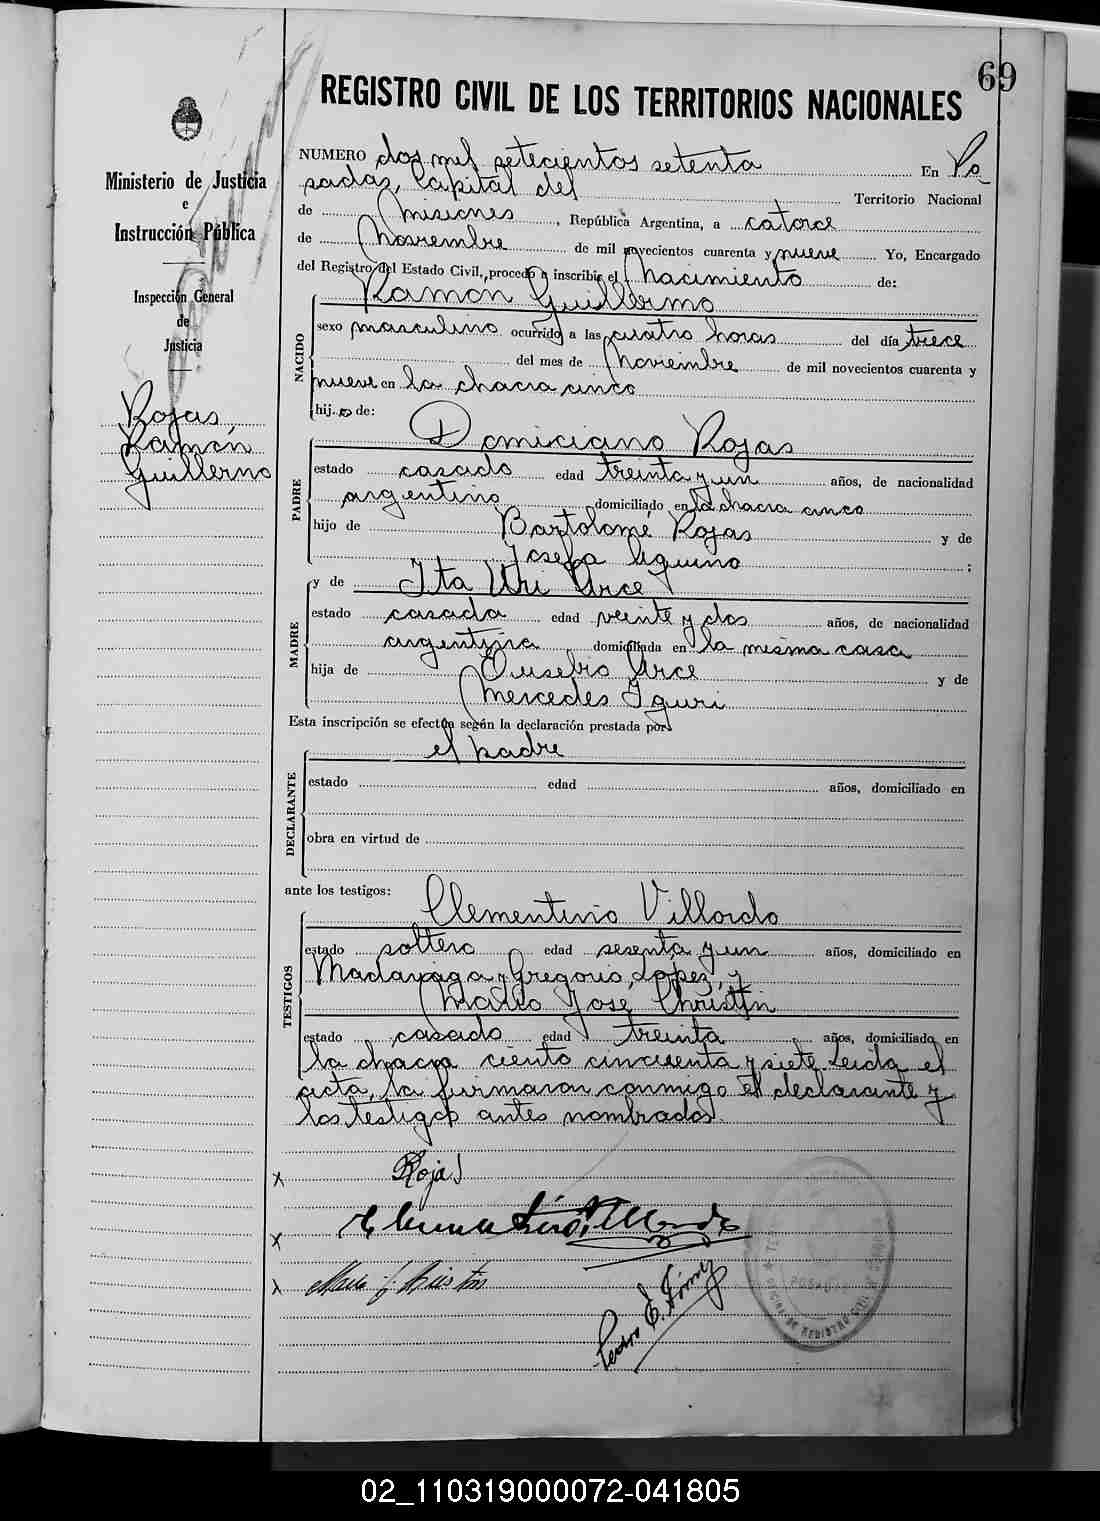 69
REGISTRO CIVIL DE LOS TERRITORIOS NACIONALES
Ministerio de Justicia
e
Instrucción Pública
Inspección General
de
Justicia
Rojas,
Ramón
Guillermo
NUMERO dos mil setecientos setenta En Po
sadas, Capital del Territorio Nacional
de Misiones, República Argentina, a catorce
de Noviembre de mil novecientos cuarenta y nueve Yo, Encargado
del Registro del Estado Civil, procedo a inscribir el Nacimiento de:
NACIDO
Ramón Guillermo
sexo masculino ocurrido a las cuatro horas del día trece
del mes de Noviembre de mil novecientos cuarenta y
nueve en la chacra cinco
hijo de:
PADRE
Domiciano Rojas
estado casado edad treinta y un años, de nacionalidad
argentino domiciliado en la chacra cinco
hijo de Bartolomé Rojas y de
Josefa Aquino ;
MADRE
y de Ita Uri Arce
estado casada edad veinte y dos años, de nacionalidad
argentina domiciliada en la misma casa
hija de Eusebio Arce y de
Mercedes Iguri
Esta inscripción se efectúa según la declaración prestada por:
DECLARANTE
el padre
estado edad años, domiciliado en
obra en virtud de
ante los testigos:
TESTIGOS
Clementino Villordo
estado soltero edad sesenta y un años, domiciliado en
Madariaga y Gregorio Lopez, y
Mario José Christin
estado casado edad treinta años, domiciliado en
la chacra ciento cincuenta y siete. Leida el
acta, la firmaron conmigo el declarante y
los testigos antes nombrados.
x Rojas
x
x
Pedro E.
POSADAS
OFICINA DE REGISTRO CIVIL
02_110319000072-041805